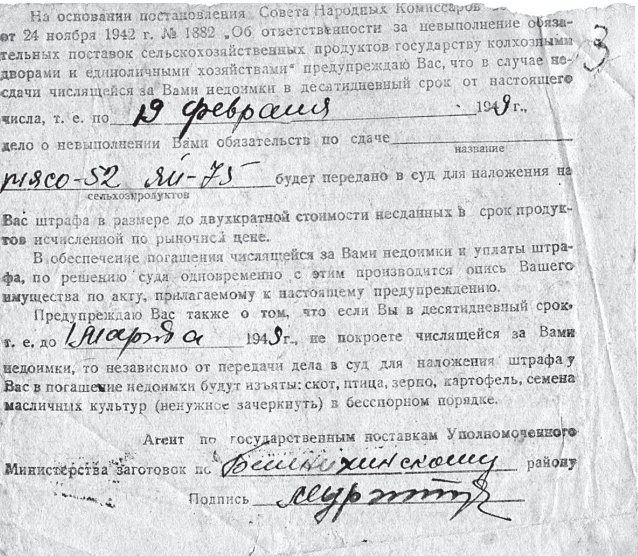 На основании постановления Совета Народных Комиссаров
от 24 ноября 1942 г. № 1882 „Об ответственности за невыполнение обяза-
тельных поставок сельскохозяйственных продуктов государству колхозными
дворами и единоличными хозяйствами“ предупреждаю Вас, что в случае не-
сдачи числящейся за Вами недоимки в десятидневный срок от настоящего
числа, т. е. по 19 февраля 1949 г.,
дело о невыполнении Вами обязательств по сдаче
название
мясо-52 яй-75 будет передано в суд для наложения на
сельхозпродуктов
Вас штрафа в размере до двухкратной стоимости несданных в срок продук-
тов исчисленной по рыночной цене.
В обеспечение погашения числящейся за Вами недоимки и уплаты штра-
фа, по решению суда одновременно с этим производится опись Вашего
имущества по акту, прилагаемому к настоящему предупреждению.
Предупреждаю Вас также о том, что если Вы в десятидневный срок,
т. е. до 1 марта 1949 г., не покроете числящейся за Вами
недоимки, то независимо от передачи дела в суд для наложения штрафа у
Вас в погашение недоимки будут изъяты: скот, птица, зерно, картофель, семена
масличных культур (ненужное зачеркнуть) в бесспорном порядке.
Агент по государственным поставкам Уполномоченного
Министерства заготовок по району
Подпись
3